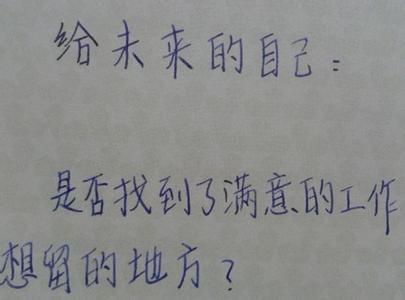 给未来的自己：
是否找到了满意的工作
想留的地方？